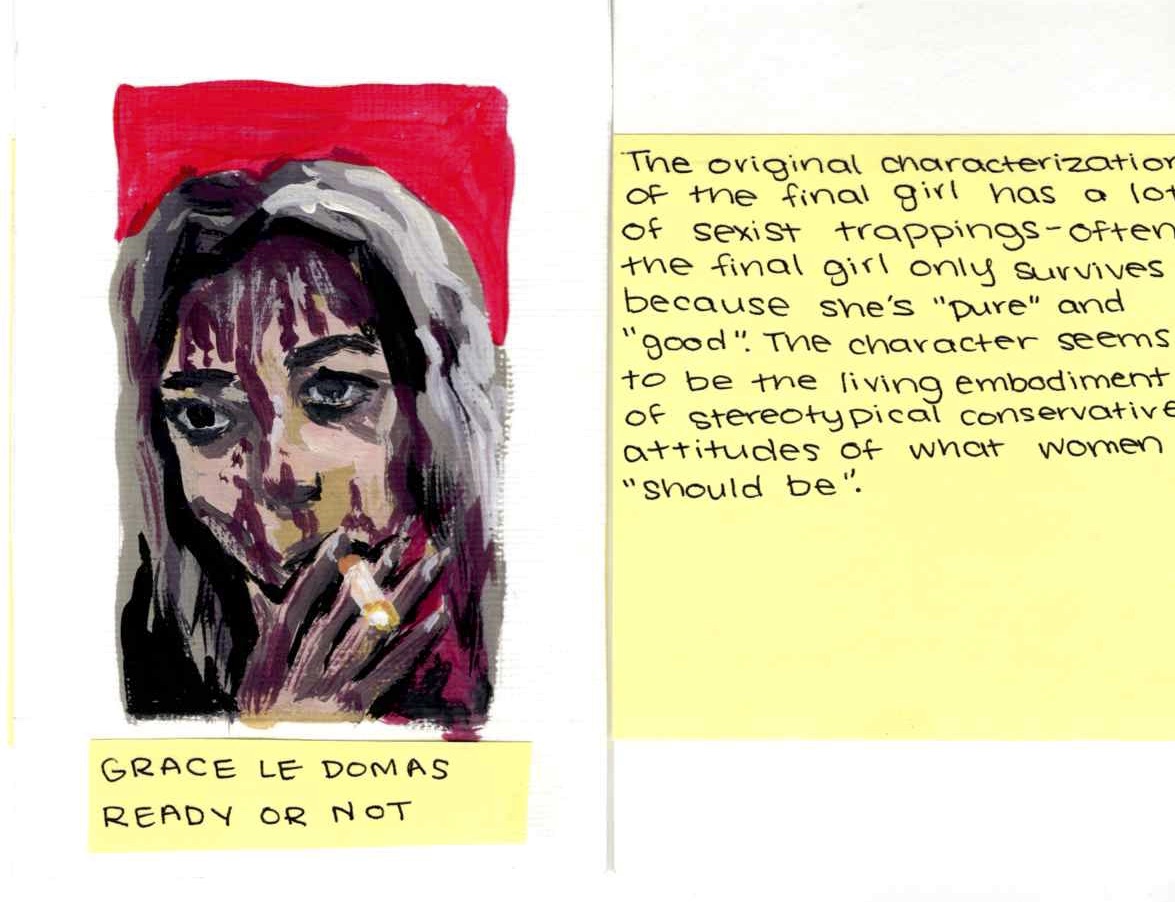 GRACE LE DOMAS
READY OR NOT
The original characterization
of the final girl has a lot
of sexist trappings-often
the final girl only survives
because she's "pure" and
"good". The character seems
to be the living embodiment
of stereotypical conservative
attitudes of what women
"should be".